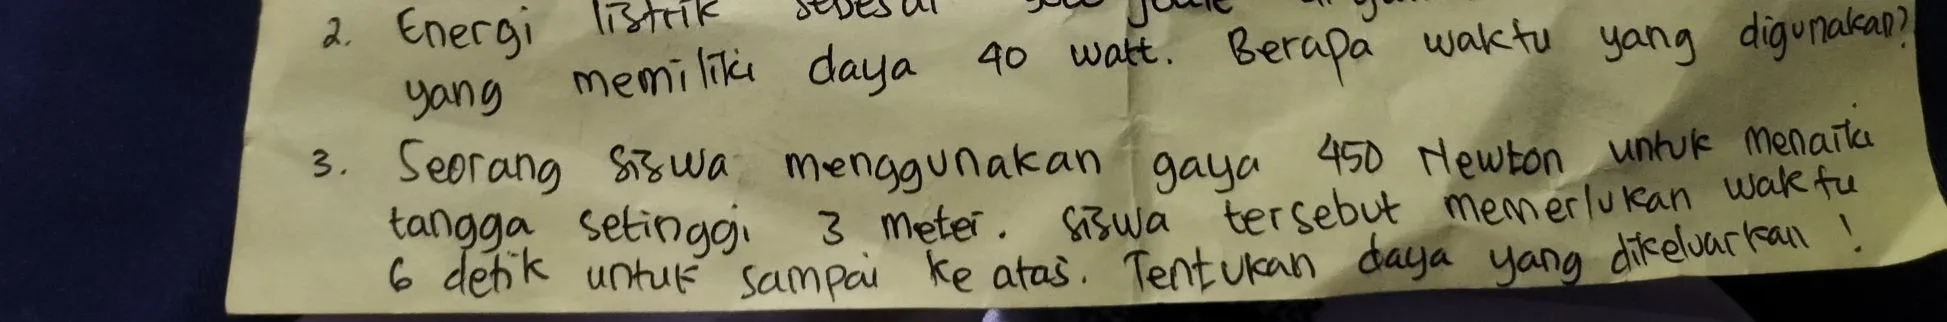 2. Energi listrik sebesar joule
yang memiliki daya 40 watt. Berapa waktu yang digunakan?
3. Seorang siswa menggunakan gaya 450 Newton untuk menaiki
tangga setinggi 3 meter. Siswa tersebut memerlukan waktu
6 detik untuk sampai ke atas. Tentukan daya yang dikeluarkan!